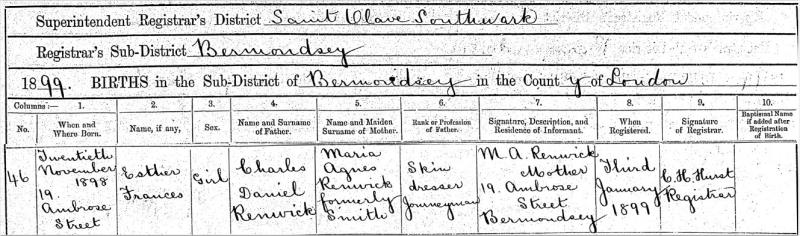 Superintendent Registrar's District Saint Olave Southwark
Registrar's Sub-District Bermondsey
1899. BIRTHS in the Sub-District of Bermondsey in the County of London
Columns:— 1. 2. 3. 4. 5. 6. 7. 8. 9. 10.
No. When and Where Born. Name, if any, Sex. Name and Surname of Father. Name and Maiden Surname of Mother. Rank or Profession of Father. Signature, Description, and Residence of Informant. When Registered. Signature of Registrar. Baptismal Name if added after Registration of Birth.
46
Twentieth
November
1898
19.
Ambrose
Street
Esther
Frances
Girl
Charles
Daniel
Renwick
Maria
Agnes
Renwick
formerly
Smith
Skin
dresser
Journeyman
M. A. Renwick
Mother
19. Ambrose
Street
Bermondsey
Third
January
1899
C. H. Hurst
Registrar